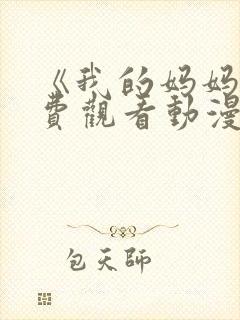 《我的妈妈
費觀看動漫
包天師